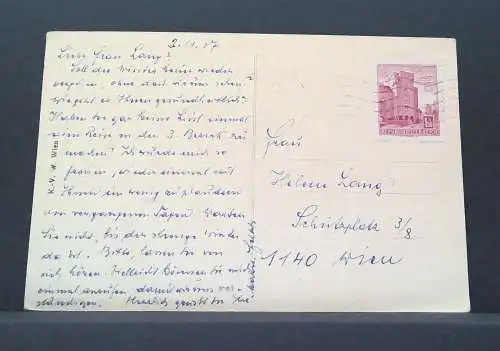 2.11.67
Liebe Frau Lang!
Soll der Winter heuer wieder
vergehen, ohne daß wir uns sehen
wie geht es Ihnen gesundheitlich?
Haben Sie gar keine Lust einmal
eine Reise in den 3. Bezirk zu
machen? Ich würde mich so
freuen, wieder einmal mit
Ihnen ein wenig zu plaudern
von vergangenen Tagen. Warten
Sie nicht, bis der strenge Winter
da ist. Bitte, lassen Sie von
sich hören. Vielleicht können Sie mich
einmal anrufen damit wir uns ver-
ständigen. Herzlich grüßt Sie Ihre
K.-V. W. Wien
REPUBLIK ÖSTERREICH
Frau
Helene Lang
Schutzplatz 3/8
1140 Wien